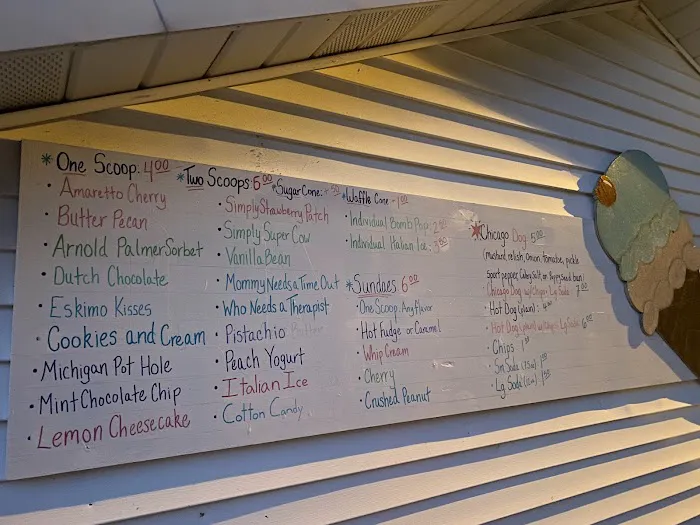 * One Scoop: 4.00
• Amaretto Cherry
• Butter Pecan
• Arnold Palmer Sorbet
• Dutch Chocolate
• Eskimo Kisses
• Cookies and Cream
• Michigan Pot Hole
• Mint Chocolate Chip
• Lemon Cheesecake
* Two Scoops: 6.00
• Simply Strawberry Patch
• Simply Super Cow
• Vanilla Bean
• Mommy Needs a Time Out
• Who Needs a Therapist
• Pistachio
• Peach Yogurt
• Italian Ice
• Cotton Candy
* Sugar Cone: + .50
* Waffle Cone - 1.00
• Individual Bomb Pop:
• Individual Italian Ice:
* Sundaes 6.00
• One Scoop, Any flavor
• Hot Fudge or Caramel
• Whip Cream
• Cherry
• Crushed Peanut
* Chicago Dog 5.00
(mustard, relish, onion, tomatoe, pickle
sport pepper, Celery Salt, on Poppy seed bun)
• Chicago Dog w/ Chips & Lg Soda 7.00
• Hot Dog (plain):
• Hot Dog (plain) w/ Chips & Lg Soda 6.00
• Chips
• Sm Soda
• Lg Soda